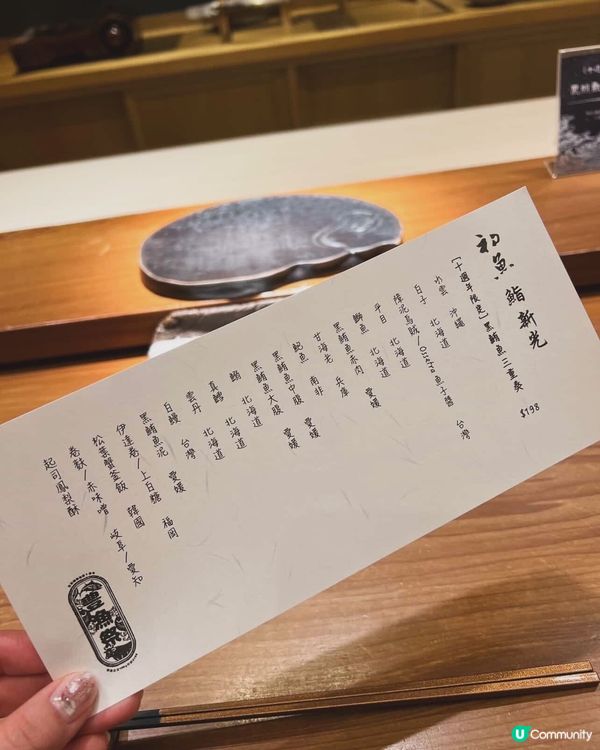 初魚 鮨新光
【十週年限定】黑鮪魚三重奏 $198
水雲 沖繩
白子 北海道
障泥烏賊/Oscietra魚子醬 台灣
平目 北海道
鰤魚 北海道
黑鮪魚赤肉 愛媛
甘海老 兵庫
鮑魚 南非
黑鮪魚中腹 愛媛
黑鮪魚大腹 愛媛
鰯 北海道
真鱈 北海道
雲丹 北海道
白鰻 台灣
黑鮪魚泥 愛媛
伊達卷/上白糖 福岡
松葉蟹釜飯 韓國
卷麩/赤味噌 岐阜/愛知
起司鳳梨酥
豊漁祭
U Community